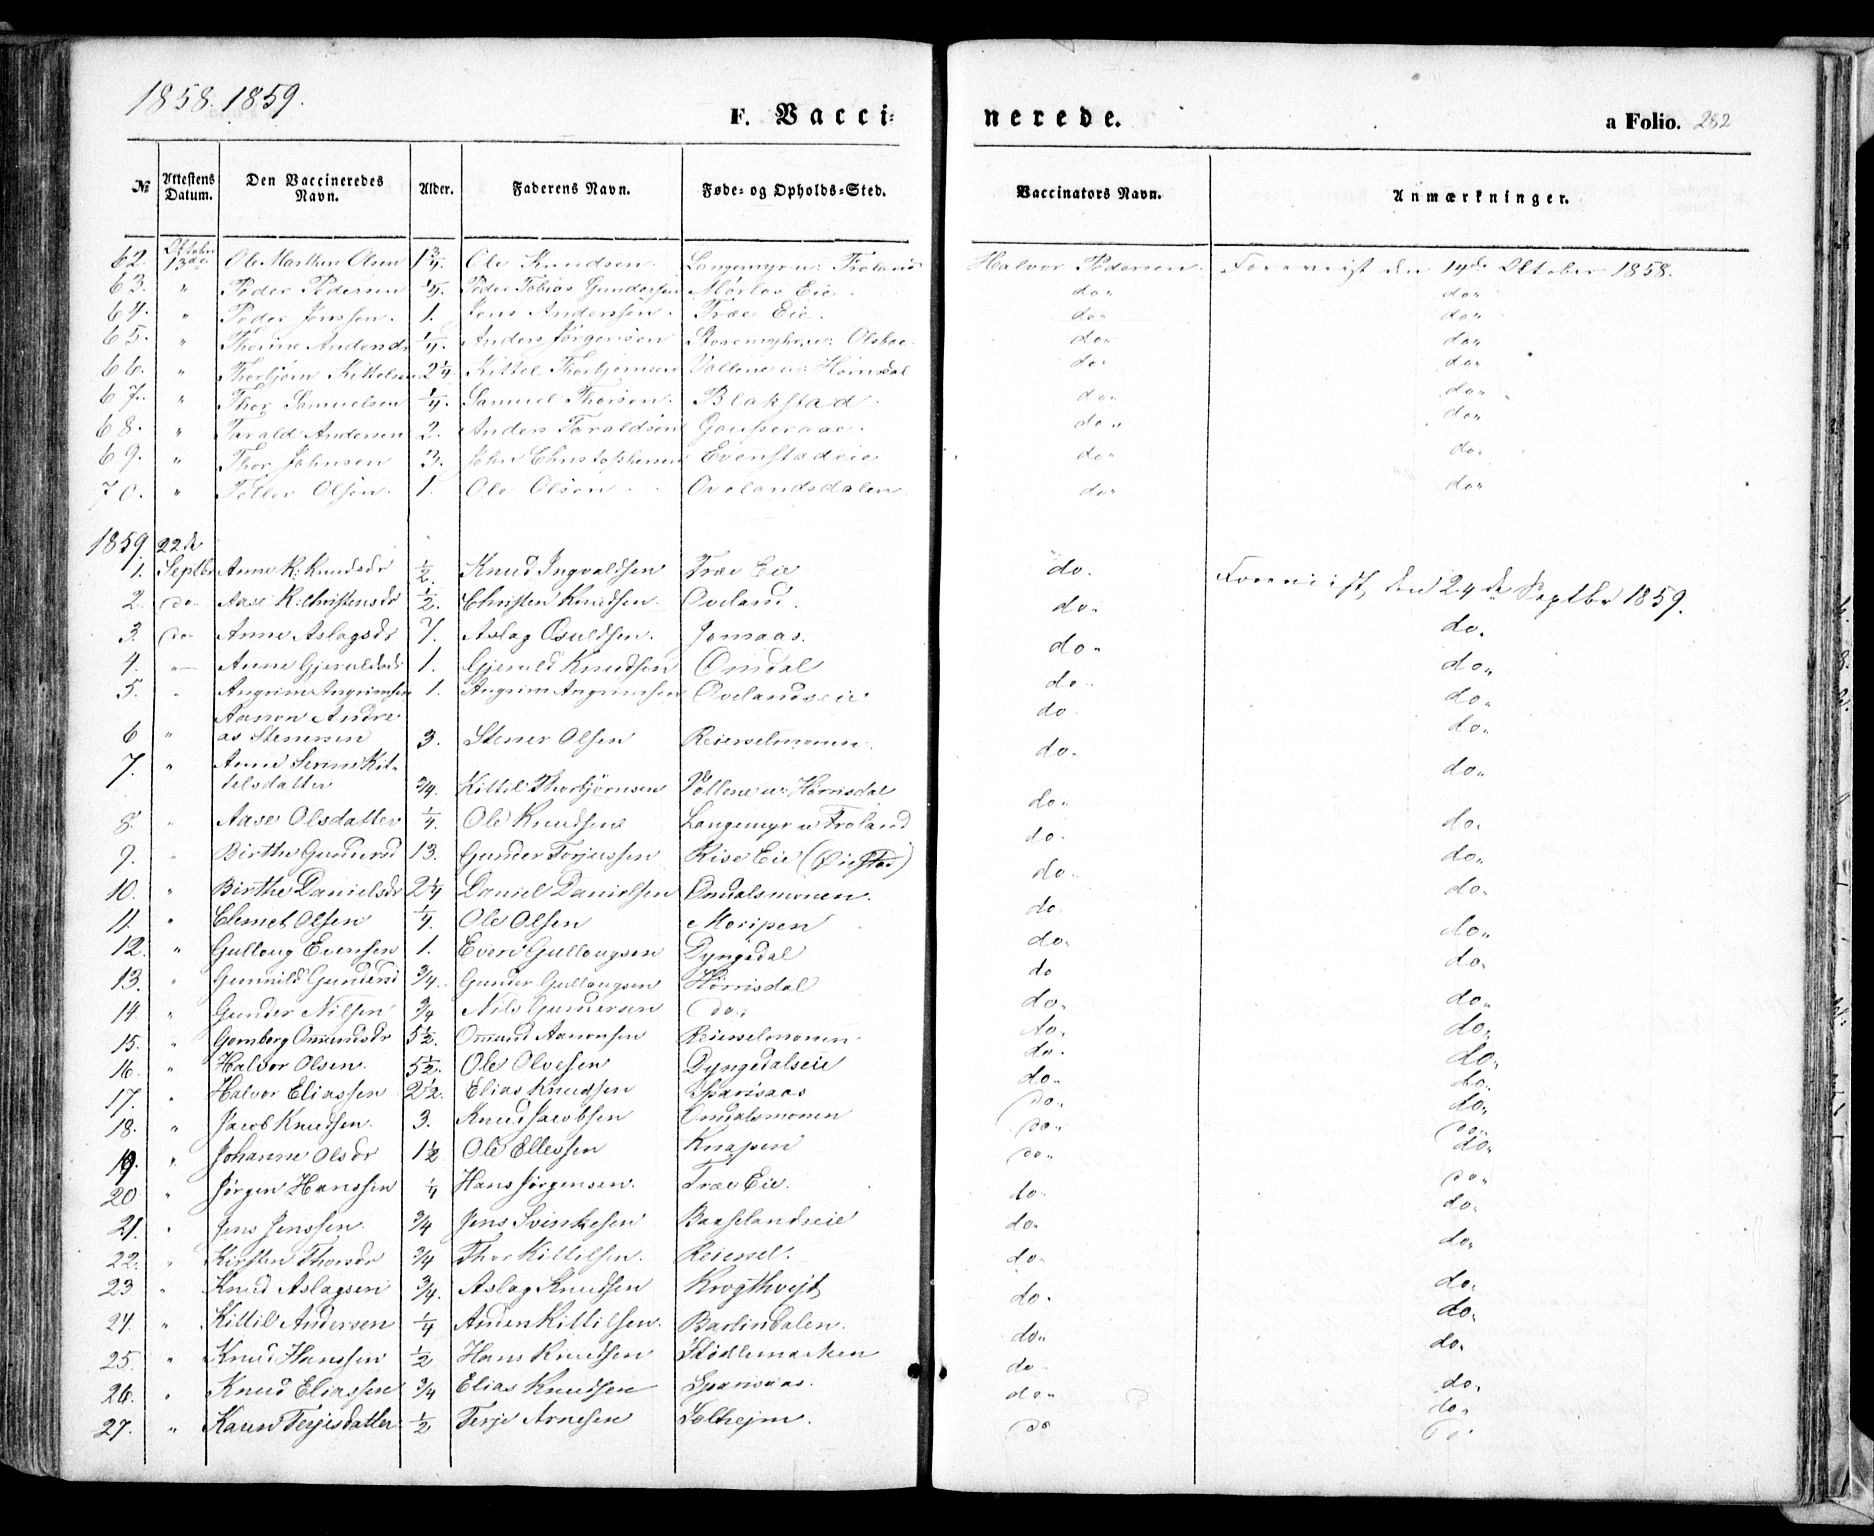 1858. 1859.
F. Vacci-
nerede.
a Folio. 282
№ Attestens Datum. Den Vaccineredes Navn. Alder. Faderens Navn. Føde- og Opholds-Sted. Vaccinators Navn. Anmærkninger.
62. Oktober 13de Ole Marthin Olsen 1 3/4. Ole Knudsen. Langemyr u: Froland Halvor Pedersen. Foreviist den 14de Oktober 1858.
63. " Peder Pedersen 1/4. Peder Tobias Gundersen Mørlos Eie. do" do"
64. " Peder Jenssen. 1. Jens Anderssen. Træe Eie. do" do"
65. " Thorine Andersdr 1/4. Anders Jørgensen Olsboe. do" do"
66. " Thorbjørn Kittelsen 2 1/4 Kittel Thorbjørnsen Vollene u: Hørrisdal do" do"
67. " Thor Samuelsen 1/4. Samuel Thorsen. Blakstad. do" do"
68. " Tarald Andersen 2. Anders Taraldsen Gauperaae. do" do"
69. " Thor Johnsen 3. John Christophersen Evenstadeie do" do"
70. " Teller Olsen. 1. Ole Olsen Ovelandsdalen do" do"
1859. 22de
1. Septbr Anne K: Knudsdr 1/2. Knud Ingvaldsen Træe Eie do. Foreviist, den 24de Septbr 1859.
2. do Aase K: Christensdr 1/2. Christen Knudsen. Oveland. do. do.
3. do Anne Aslagsdr 7. Aslag Osuldsen. Jomaas. do. do.
4. " Anne Gjeruldsdr 1. Gjeruld Knudsen Omdal do. do.
5. " Angrim Angrimsen 1. Angrim Angrimsen Ovelandseie do. do.
Aanon Andre
6 " as Stenersen 3. Stener Olsen Reierselmonen. do. do.
7. " Anne Serine Kit-
telsdatter 3/4. Kittil Thorbjørnsen Vollene u: Hørrisdal do. do.
8. " Aase Olsdatter 1/4. Ole Knudsen Langemyr u Froland do. do.
9. " Birthe Gundersd 13. Gunder Torjussen Rise Eie (Øiestad) do. do.
10. " Birthe Danielsdr 2 1/4 Daniel Danielsen Omdalsmonen. do. do.
11. " Clemet Olsen 1/4. Ole Olsen Moripen do. do.
12. " Gulloug Evensen 1. Even Gullougsen Dyngedal do do.
13. " Gunnild Gundersd 3/4. Gunder Gullougsen Hørrisdal do. do.
14. " Gunder Nilsen 3/4 Nils Gundersen do. do. do.
15. " Gomborg Omundsdr 5 1/2. Omund Aanonsen Reierselmonen do. do.
16. " Halvor Olsen. 5 1/2. Ole Olvesen Dyngedalseie do. do.
17. " Halvor Eliassen 2 1/2. Elias Knudsen Sparsaas do. do.
18. " Jacob Knudsen. 3. Knud Jacobsen Omdalsmonen do. do.
19. " Johanne Olsdr 1 1/2 Ole Ellessen Knapen do. do.
20 " Jørgen Hanssen 1/4 Hans Jørgensen. Træe Eie. do. do.
21. " Jens Jenssen. 3/4 Jens Baaselandseie do. do.
22. " Kirsten Thorsdr 3/4 Thor Kittelsen. Reiersel. do. do.
23 " Knud Aslagsen 3/4. Aslag Knudsen Krogthvejt do. do.
24. " Kittil Andersen 1/4 Anders Kittilsen. Barlindalen. do. do.
25. " Knud Hanssen 1/2 Hans Knudsen Stødlemarken do. do.
26. " Knud Eliassen 3/4 Elias Knudsen Sparsaas. do. do.
27. " Karen Terjesdatter 1/2 Terje Arnesen Solhejm. do do